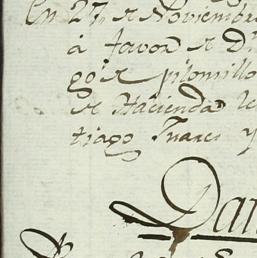 En 27, de Noviembre
á favor de D.
go de pilomillo
de Hacienda le
tiago Juares y
Dan